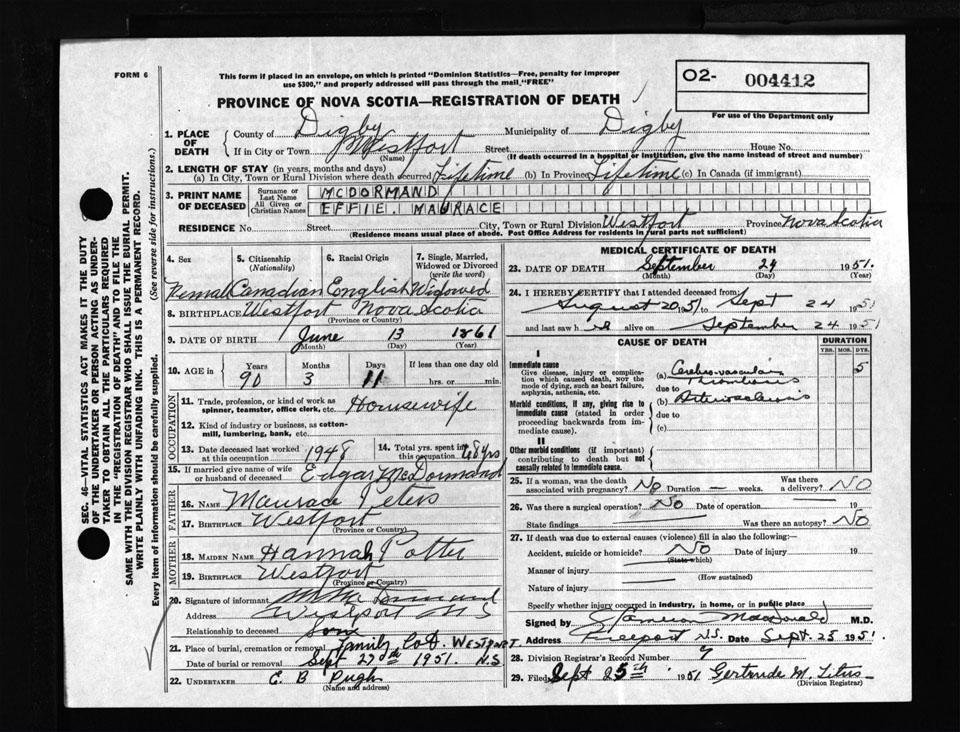 FORM 6
This form if placed in an envelope, on which is printed "Dominion Statistics—Free, penalty for improper
use $300," and properly addressed will pass through the mail "FREE"
O2- 004412
For use of the Department only
PROVINCE OF NOVA SCOTIA—REGISTRATION OF DEATH
1. PLACE OF DEATH
County of Digby Municipality of Digby
If in City or Town Westport Street House No.
(Name) (If death occurred in a hospital or institution, give the name instead of street and number)
2. LENGTH OF STAY (in years, months and days)
(a) In City, Town or Rural Division where death occurred Lifetime (b) In Province Lifetime (c) In Canada (if immigrant)
3. PRINT NAME OF DECEASED
Surname or Last Name MCDORMAND
All Given or Christian Names EFFIE. MAURACE
RESIDENCE No. Street City, Town or Rural Division Westport Province Nova Scotia
(Residence means usual place of abode. Post Office Address for residents in rural parts not sufficient)
4. Sex
5. Citizenship (Nationality)
6. Racial Origin
7. Single, Married, Widowed or Divorced (write the word)
Femal Canadian English Widowed
8. BIRTHPLACE Westport Nova Scotia
(Province or Country)
9. DATE OF BIRTH June 13 1861
(Month) (Day) (Year)
10. AGE in Years Months Days If less than one day old
90 3 11 hrs. or min.
OCCUPATION
11. Trade, profession, or kind of work as spinner, teamster, office clerk, etc. Housewife
12. Kind of industry or business, as cotton-mill, lumbering, bank, etc.
13. Date deceased last worked at this occupation 1948
14. Total yrs. spent in this occupation 68 yrs
15. If married give name of wife or husband of deceased Edgar McDormand
FATHER
16. NAME Maurace Peters
17. BIRTHPLACE Westport
(Province or Country)
MOTHER
18. MAIDEN NAME Hannah Potter
19. BIRTHPLACE Westport
(Province or Country)
20. Signature of informant
Address Westport N S
Relationship to deceased Son
21. Place of burial, cremation or removal Family Lot. WESTPORT.
Date of burial or removal Sept 27th 1951. N.S
22. UNDERTAKER E. B Pugh
(Name and address)
MEDICAL CERTIFICATE OF DEATH
23. DATE OF DEATH September 24 1951.
(Month) (Day) (Year)
24. I HEREBY CERTIFY that I attended deceased from:
August 20 1951 to Sept 24 1951
and last saw h er alive on September 24 1951
CAUSE OF DEATH
DURATION
YRS. MOS. DYS.
I
Immediate cause
Give disease, injury or complication which caused death, NOT the mode of dying, such as heart failure, asphyxia, asthenia, etc.
(a) Cerebro-vascular Thrombosis 5
due to
Morbid conditions, if any, giving rise to immediate cause (stated in order proceeding backwards from immediate cause).
(b) Arteriosclerosis
due to
(c)
II
Other morbid conditions (if important) contributing to death but not causally related to immediate cause.
25. If a woman, was the death associated with pregnancy? No Duration — weeks. Was there a delivery? NO
26. Was there a surgical operation? No Date of operation 19
State findings Was there an autopsy? No
27. If death was due to external causes (violence) fill in also the following:—
Accident, suicide or homicide? No Date of injury 19
(State which)
Manner of injury
(How sustained)
Nature of injury
Specify whether injury occurred in industry, in home, or in public place
Signed by Cameron MacDonald M.D.
Address Freeport N.S. Date Sept. 25 1951.
28. Division Registrar's Record Number 9
29. Filed Sept 25th 1951 Gertrude M. Titus
(Division Registrar)
SEC. 46—VITAL STATISTICS ACT MAKES IT THE DUTY
OF THE UNDERTAKER OR PERSON ACTING AS UNDER-
TAKER TO OBTAIN ALL THE PARTICULARS REQUIRED
IN THE "REGISTRATION OF DEATH" AND TO FILE THE
SAME WITH THE DIVISION REGISTRAR WHO SHALL ISSUE THE BURIAL PERMIT.
WRITE PLAINLY WITH UNFADING INK. THIS IS A PERMANENT RECORD.
Every item of information should be carefully supplied. (See reverse side for instructions.)